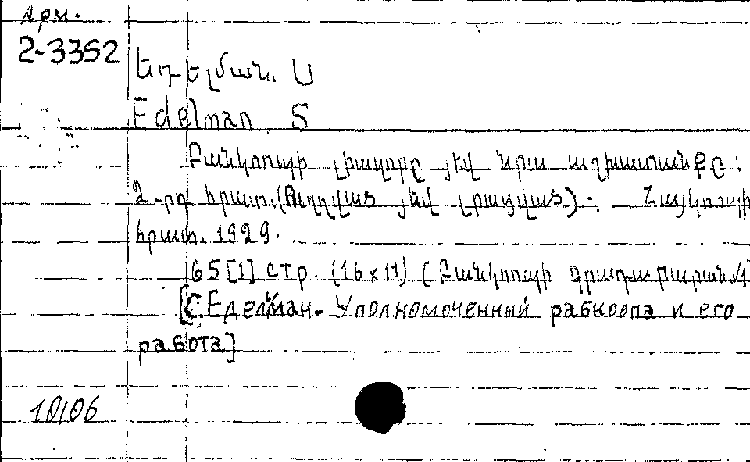 Арм.
2-3352
Եդելման. Ս
Edelman S
Բանկոոպի լիազորը յեվ նրա աշխատանքը:
2-րդ հրատ. (Ուղղված յեվ լրացված). Հայկոոպի
հրատ. 1929.
65 [1] стр. (16 x 11) (Բանկոոպի գրադարան
[С. Еделман. Уполномоченный рабкоопа и его
работа]
10106